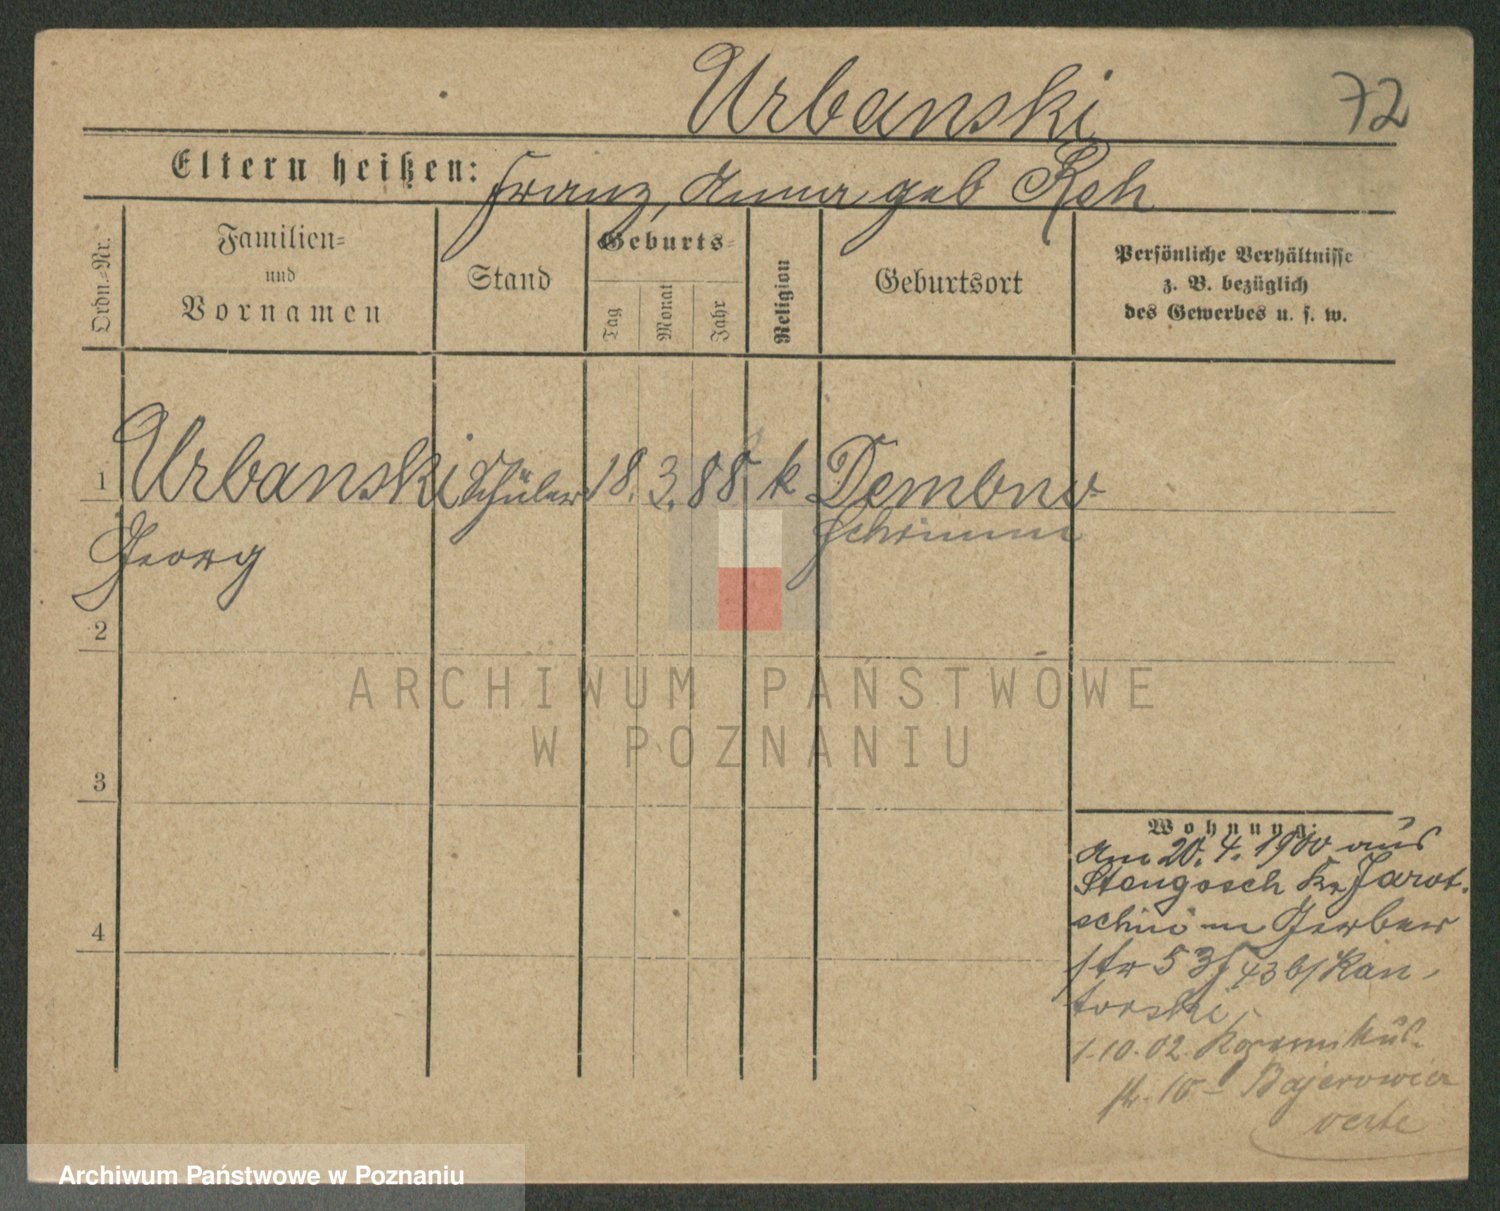 Urbanski
72
Eltern heißen: Franz, Anna geb Reh
Ordn.-Nr.
Familien-
und
Vornamen
Stand
Geburts-
Tag
Monat
Jahr
Religion
Geburtsort
Persönliche Verhältnisse
z. B. bezüglich
des Gewerbes u. s. w.
1 Urbanski Schüler 18. 3. 88 k Dembno
Schrimm
Georg
2
ARCHIWUM PAŃSTWOWE
W POZNANIU
3
Wohnung:
Am 20. 4. 1900 aus
Stengosch Kr Jarot-
schin in Gerber
str 53 b/ Kan-
torski
1.10.02. Kopernikus-
str. 10 - Bajerowicz
verte
4
Archiwum Państwowe w Poznaniu